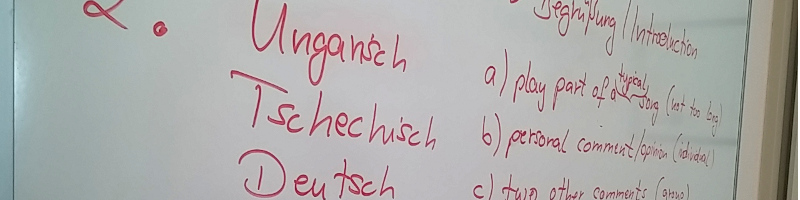 2. Ungarisch
Tschechisch
Deutsch
Begrüßung / Introduction
a) play part of a typical song (not too long)
b) personal comment/opinion (individual)
c) two other comments (group)